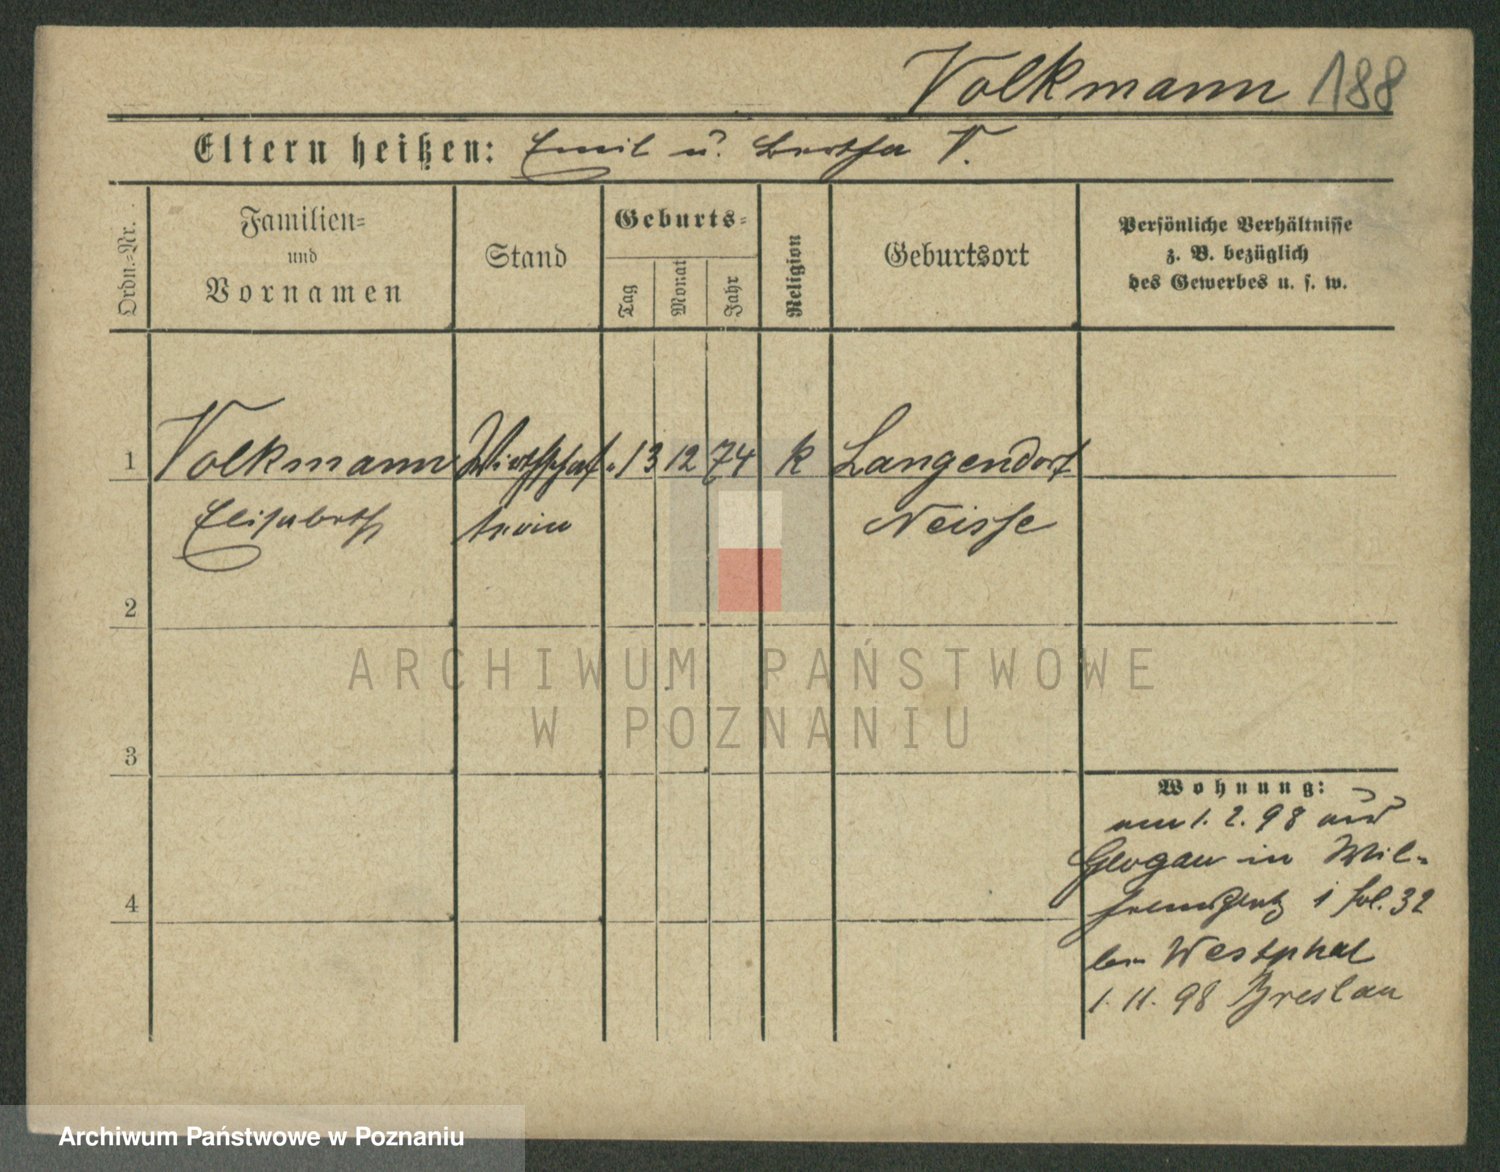 Volkmann 188
Eltern heißen: Emil u. Bertha V.
Ordn.-Nr.
Familien-
und
Vornamen
Stand
Geburts-
Tag
Monat
Jahr
Religion
Geburtsort
Persönliche Verhältnisse
z. B. bezüglich
des Gewerbes u. s. w.
1 Volkmann Wirthschaf- 13 12 74 k Langendorf
Elisabeth terin Neisse
2
3
4
Wohnung:
am 1. 2. 98 aus
Glogau in Wil-
fol. 32
bei Westphal
1. 11. 98 Breslau
ARCHIWUM PAŃSTWOWE
W POZNANIU
Archiwum Państwowe w Poznaniu